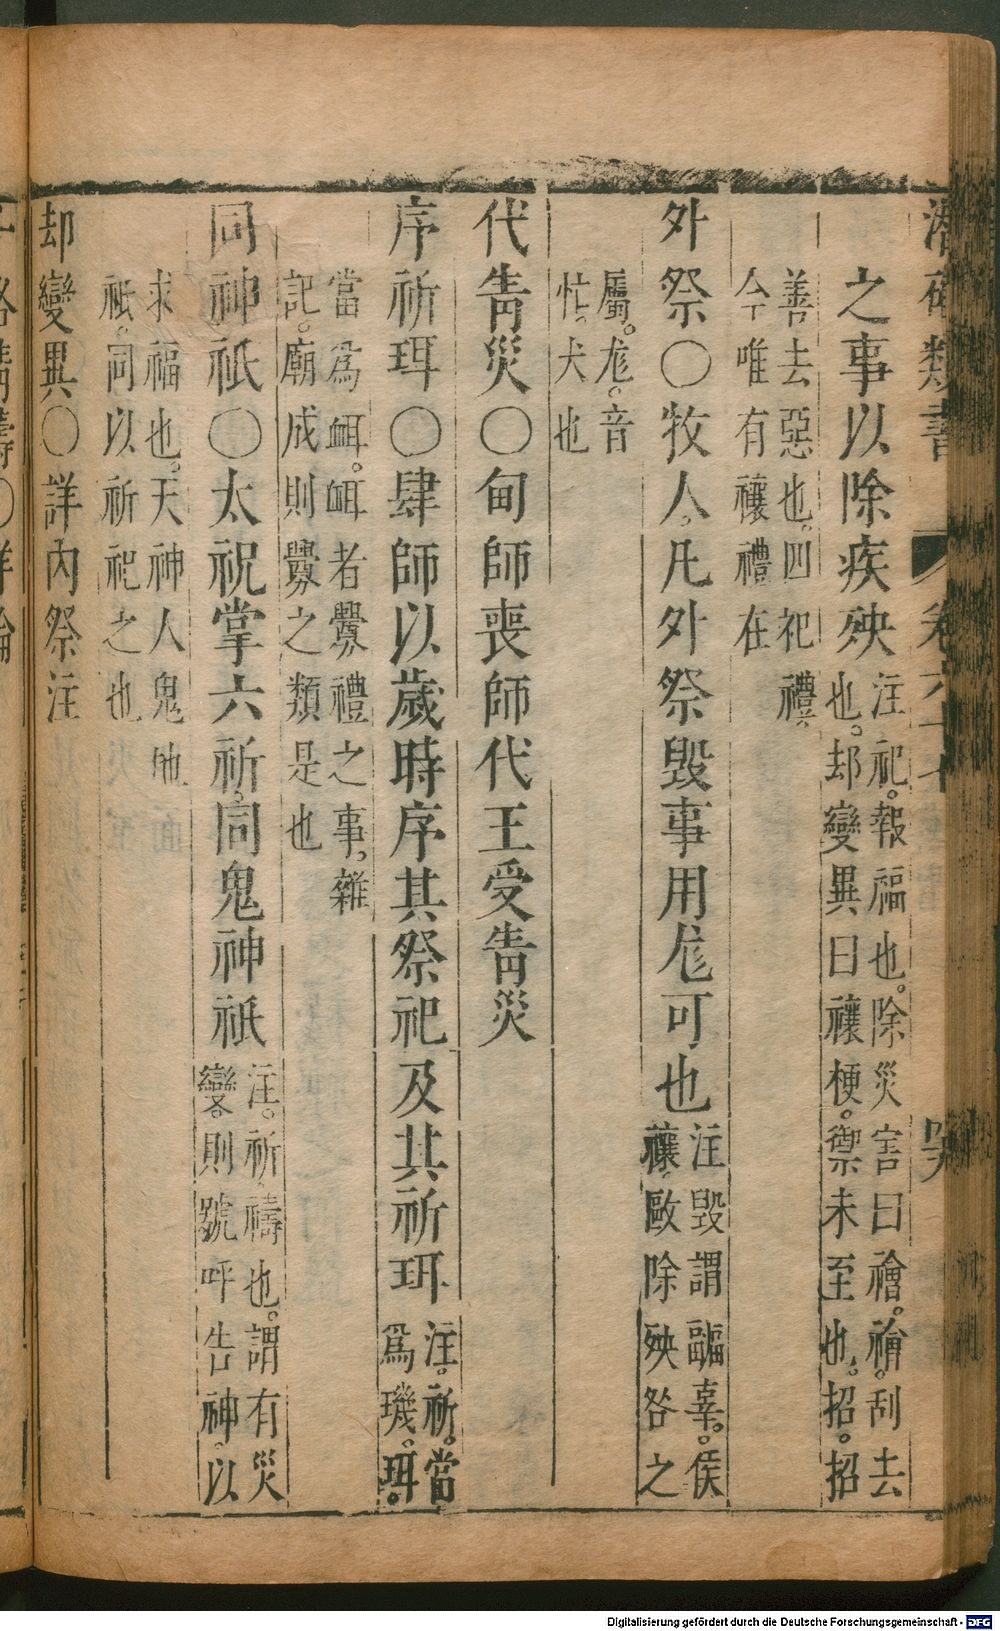 潛確類書 卷六十七
之事以除疾殃注祀。報福也。除災害曰禬。禬。刮去
也。却變異曰禳梗。禦未至也。招。招
善去惡也。四祀禮。
今唯有禳禮在
外祭〇牧人。凡外祭毀事用尨可也注毀謂副辜。侯
禳。歐除殃咎之
屬。尨。音
忙。犬也
代眚災〇甸師喪師代王受眚災
序祈珥〇肆師以歲時序其祭祀及其祈珥注。祈。當
爲璣。珥。
當爲衈。衈者釁禮之事。雜
記。廟成則釁之類是也
同神祇〇太祝掌六祈。同鬼神祇注。祈。禱也。謂有災
變。則號呼告神。以
求福也。天神人鬼地
祇。同以祈祀之也
却變異〇詳內祭注
Digitalisierung gefördert durch die Deutsche Forschungsgemeinschaft - DFG